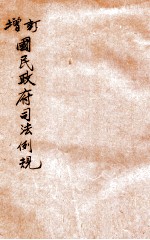 增訂
國民政府司法例規